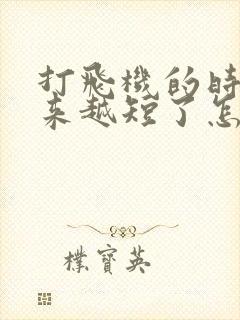 打飛機的時
来越短了怎
樸寶英